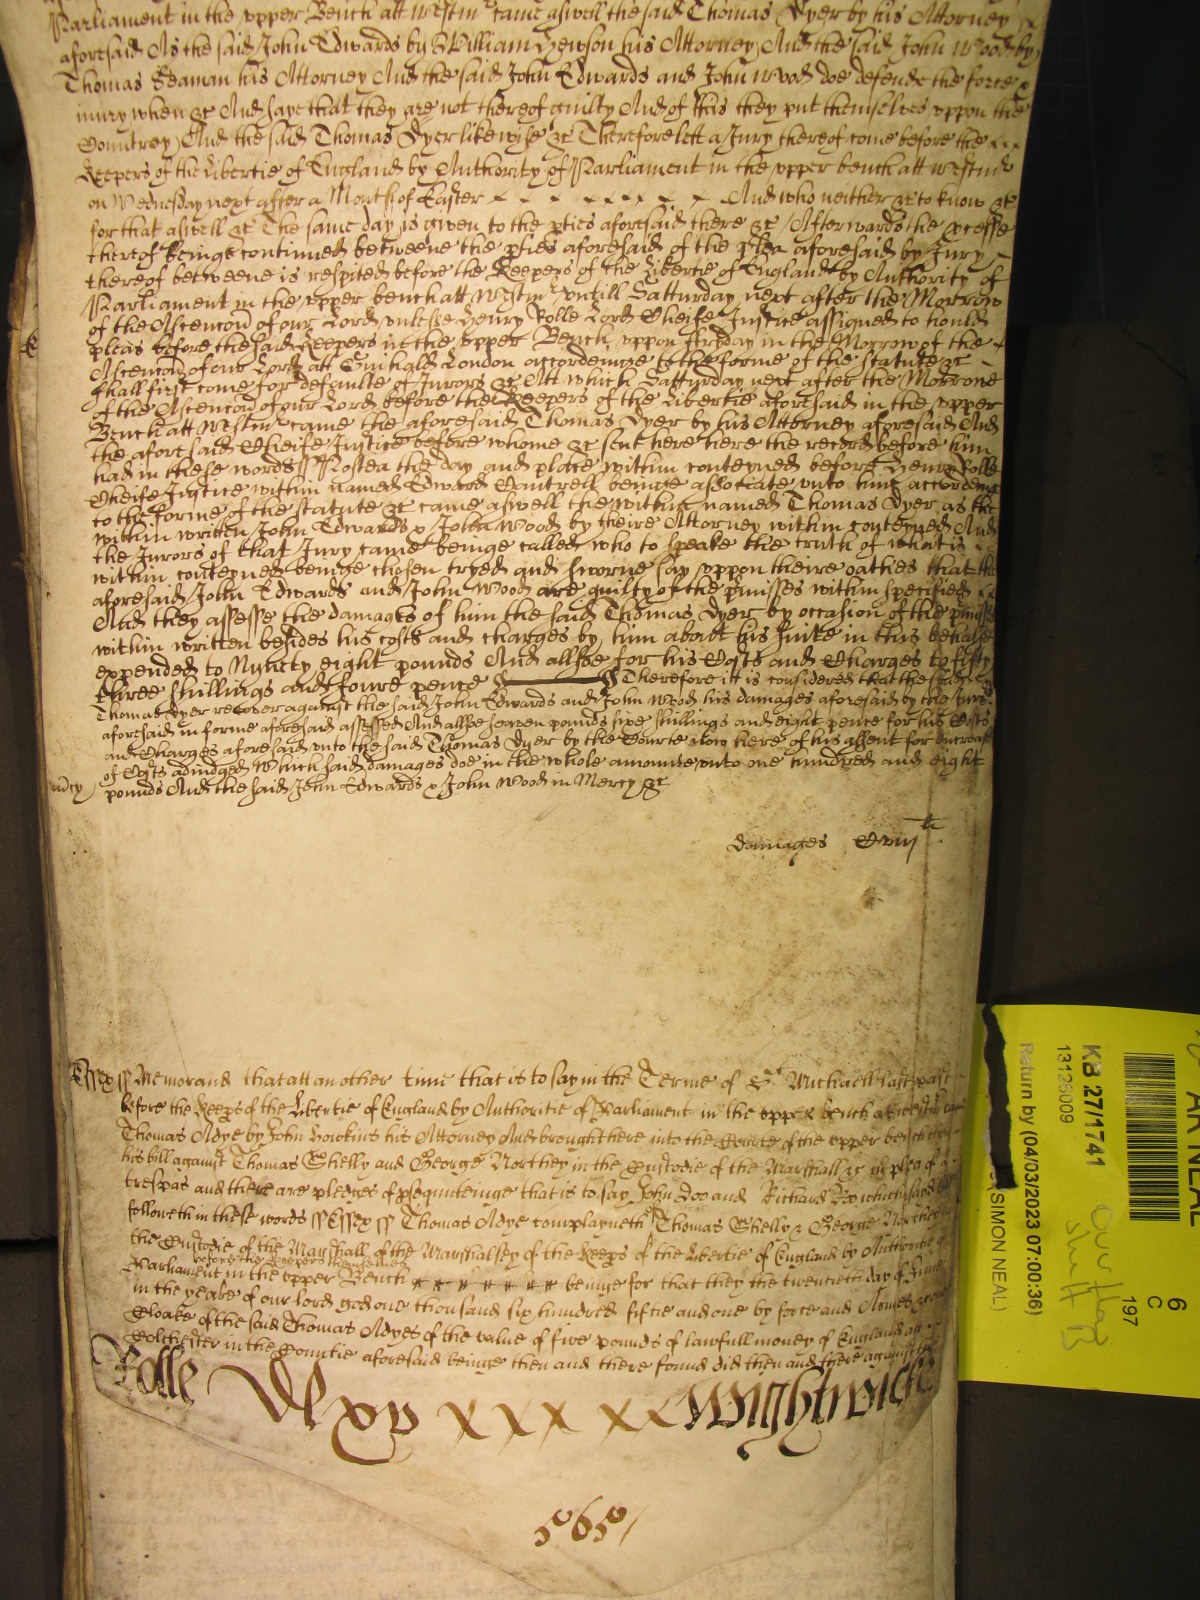 Parliament in the vpper Bench att Westmr came aswell the said Thomas Dyer by his Attorney
aforesaid As the said John Edwards by William Hewson his Attorney And the said John Wood by
Thomas Seaman his Attorney And the said John Edwards and John Wood doe defende the force &
iniury when &c And saye that they are not thereof guilty And of this they put themselves vppon the
Countrey And the said Thomas Dyer likewise &c Therefore lett a Jury thereof come before the
Keepers of the Libertie of England by Authority of Parliament in the vpper bench att Westmr
on Wednesday next after a Month of Easter x x x x x x x And who neither &c to know &c
for that aswell &c The same day is given to the pties aforesaid there &c Afterwards the pcesse
thereof beinge continued betweene the pties aforesaid of the plea aforesaid by Jury
thereof betweene is respited before the Keepers of the Libertie of England by Authority of
Parliament in the vpper bench att Westmr vntill Satturday next after the Morrow
of the Ascencon of our Lord vnlesse Henry Rolle Lord Cheife Justice assigned to hould
pleas before the said Keepers in the vpper Bench vppon fryday in the Morrow of the
Ascencon of our Lord att Guihald London accordeinge to the forme of the statute &c
shall first come for defaulte of Jurors &c Att which Satturday next after the Morrowe
of the Ascencon of our Lord before the Keepers of the Libertie aforesaid in the vpper
Bench att Westmr came the aforesaid Thomas Dyer by his Attorney aforesaid And
the aforesaid Cheife Justice before whome &c sent here the record before him
had in these words ss Postea the day and place within conteyned before Henry Rolle
Cheife Justice within named Edward Cantrell beinge associate vnto him accordeing
to the forme of the statute &c came aswell the within named Thomas Dyer as the
within written John Edwards & John Wood by theire Attorney within conteyned And
the Jurors of that Jury came beinge called who to speake the truth of what is
within conteyned beinge chosen tryed and sworne say vppon theire oathes that the
aforesaid John Edwards and John Wood are guilty of the pmisses within specified
And they assesse the damages of him the said Thomas Dyer by occasion of the pmisses
within written besides his costs and charges by him about his suite in this behalfe
expended to Nynety eight pounds And allsoe for his Costs and Charges to fifty
three shillings and foure pence Therefore it is considered that the said
Thomas Dyer recover against the said John Edwards and John Wood his damages aforesaid by the Jurie
aforesaid in forme aforesaid assessed And allsoe seaven pounds sixe shillings and eight pence for his Costs
and Charges aforesaid vnto the said Thomas Dyer by the Courte now here of his assent for increase
of Costs adiudged Which said damages doe in the whole amounte vnto one hundred and eight
pounds And the said John Edwards & John Wood in Mercy &c
damages Cviijli
Essex ss Memorand that att an other time that is to say in the Terme of St Michaell last past
before the Keeps of the Libertie of England by Authoritie of Parliament in the vpper bench at Westmr came
Thomas Adye by John Hawkins his Attorney And brought here into the Courte of the vpper bench then
his bill against Thomas Shelly and George Northey in the Custodie of the Marshall &c of plea of
trespas and there are pledges of psequuteinge that is to say John Doo and Richard Roo which said bill
followeth in these words ss Essex ss Thomas Adye complayneth Thomas Shelly & George Northey in
the Custodie of the Marshall of the Marshalsey of the Keeps of the Libertie of England by Authoritie of
before the Keepers themselves
Parliament in the vpper Bench beinge for that they the twentieth day of June
in the yeare of our lord god one thousand six hundred fiftie and one by force and Armes &c one
Cloake of the said Thomas Adyes of the value of five pounds of lawfull money of England att
Colchester in the Countie aforesaid beinge then and there found did then and there against the
Rolle Dlxv x x x x x Wightwicke
565
KB 27/1741
13126009
Return by (04/03/2023 07:00:36)
(SIMON NEAL)
6
C
197